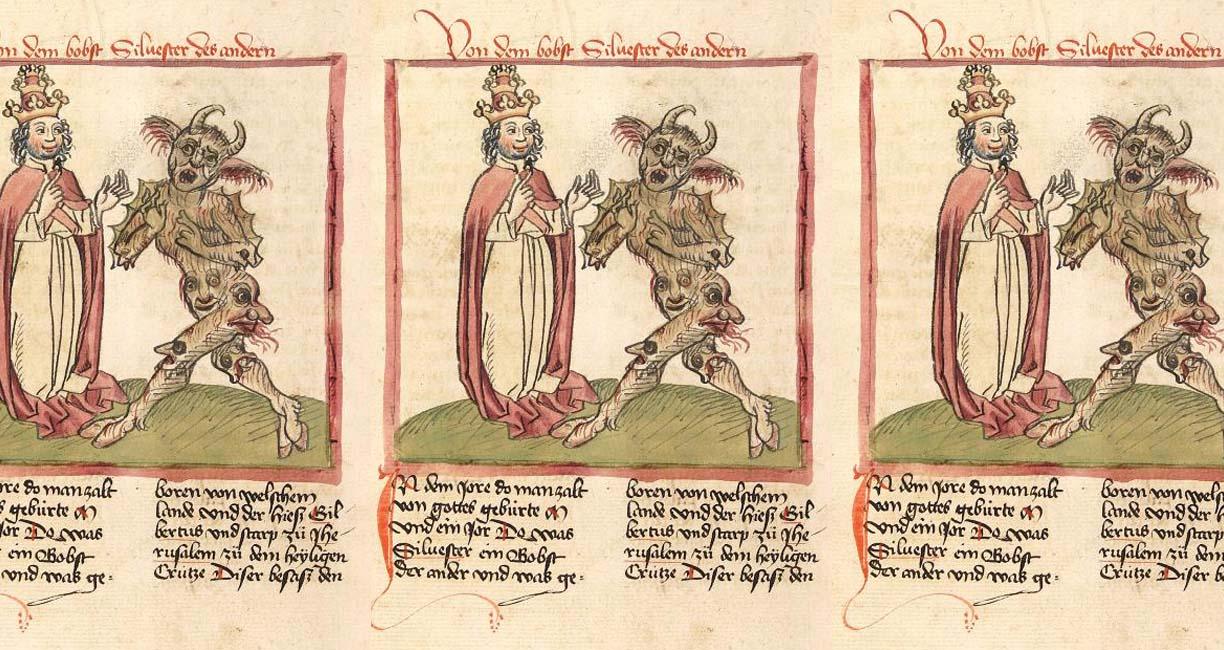 on dem bobst Siluester des andern
ore do man zalt
s gebürte M
Jor Do was
ein Bobst
vnd was ge=
boren von welschem
lande vnd der hiesz Gil
bertus vnd starp zů Jhe=
rusalem zů dem heyligen
Crütze Diser besasz den
Von dem bobst Siluester des andern
IN dem Jore do man zalt
von gottes gebürte M
vnd ein Jor Do was
Siluester ein Bobst
der ander vnd was ge=
boren von welschem
lande vnd der hiesz Gil
bertus vnd starp zů Jhe=
rusalem zů dem heyligen
Crütze Diser besasz den
Von dem bobst Siluester des andern
IN dem Jore do man zalt
von gottes gebürte M
vnd ein Jor Do was
Siluester ein Bobst
der ander vnd was ge=
boren von wels
lande vnd der
bertus vnd starp
rusalem zů dem
Crütze Diser be